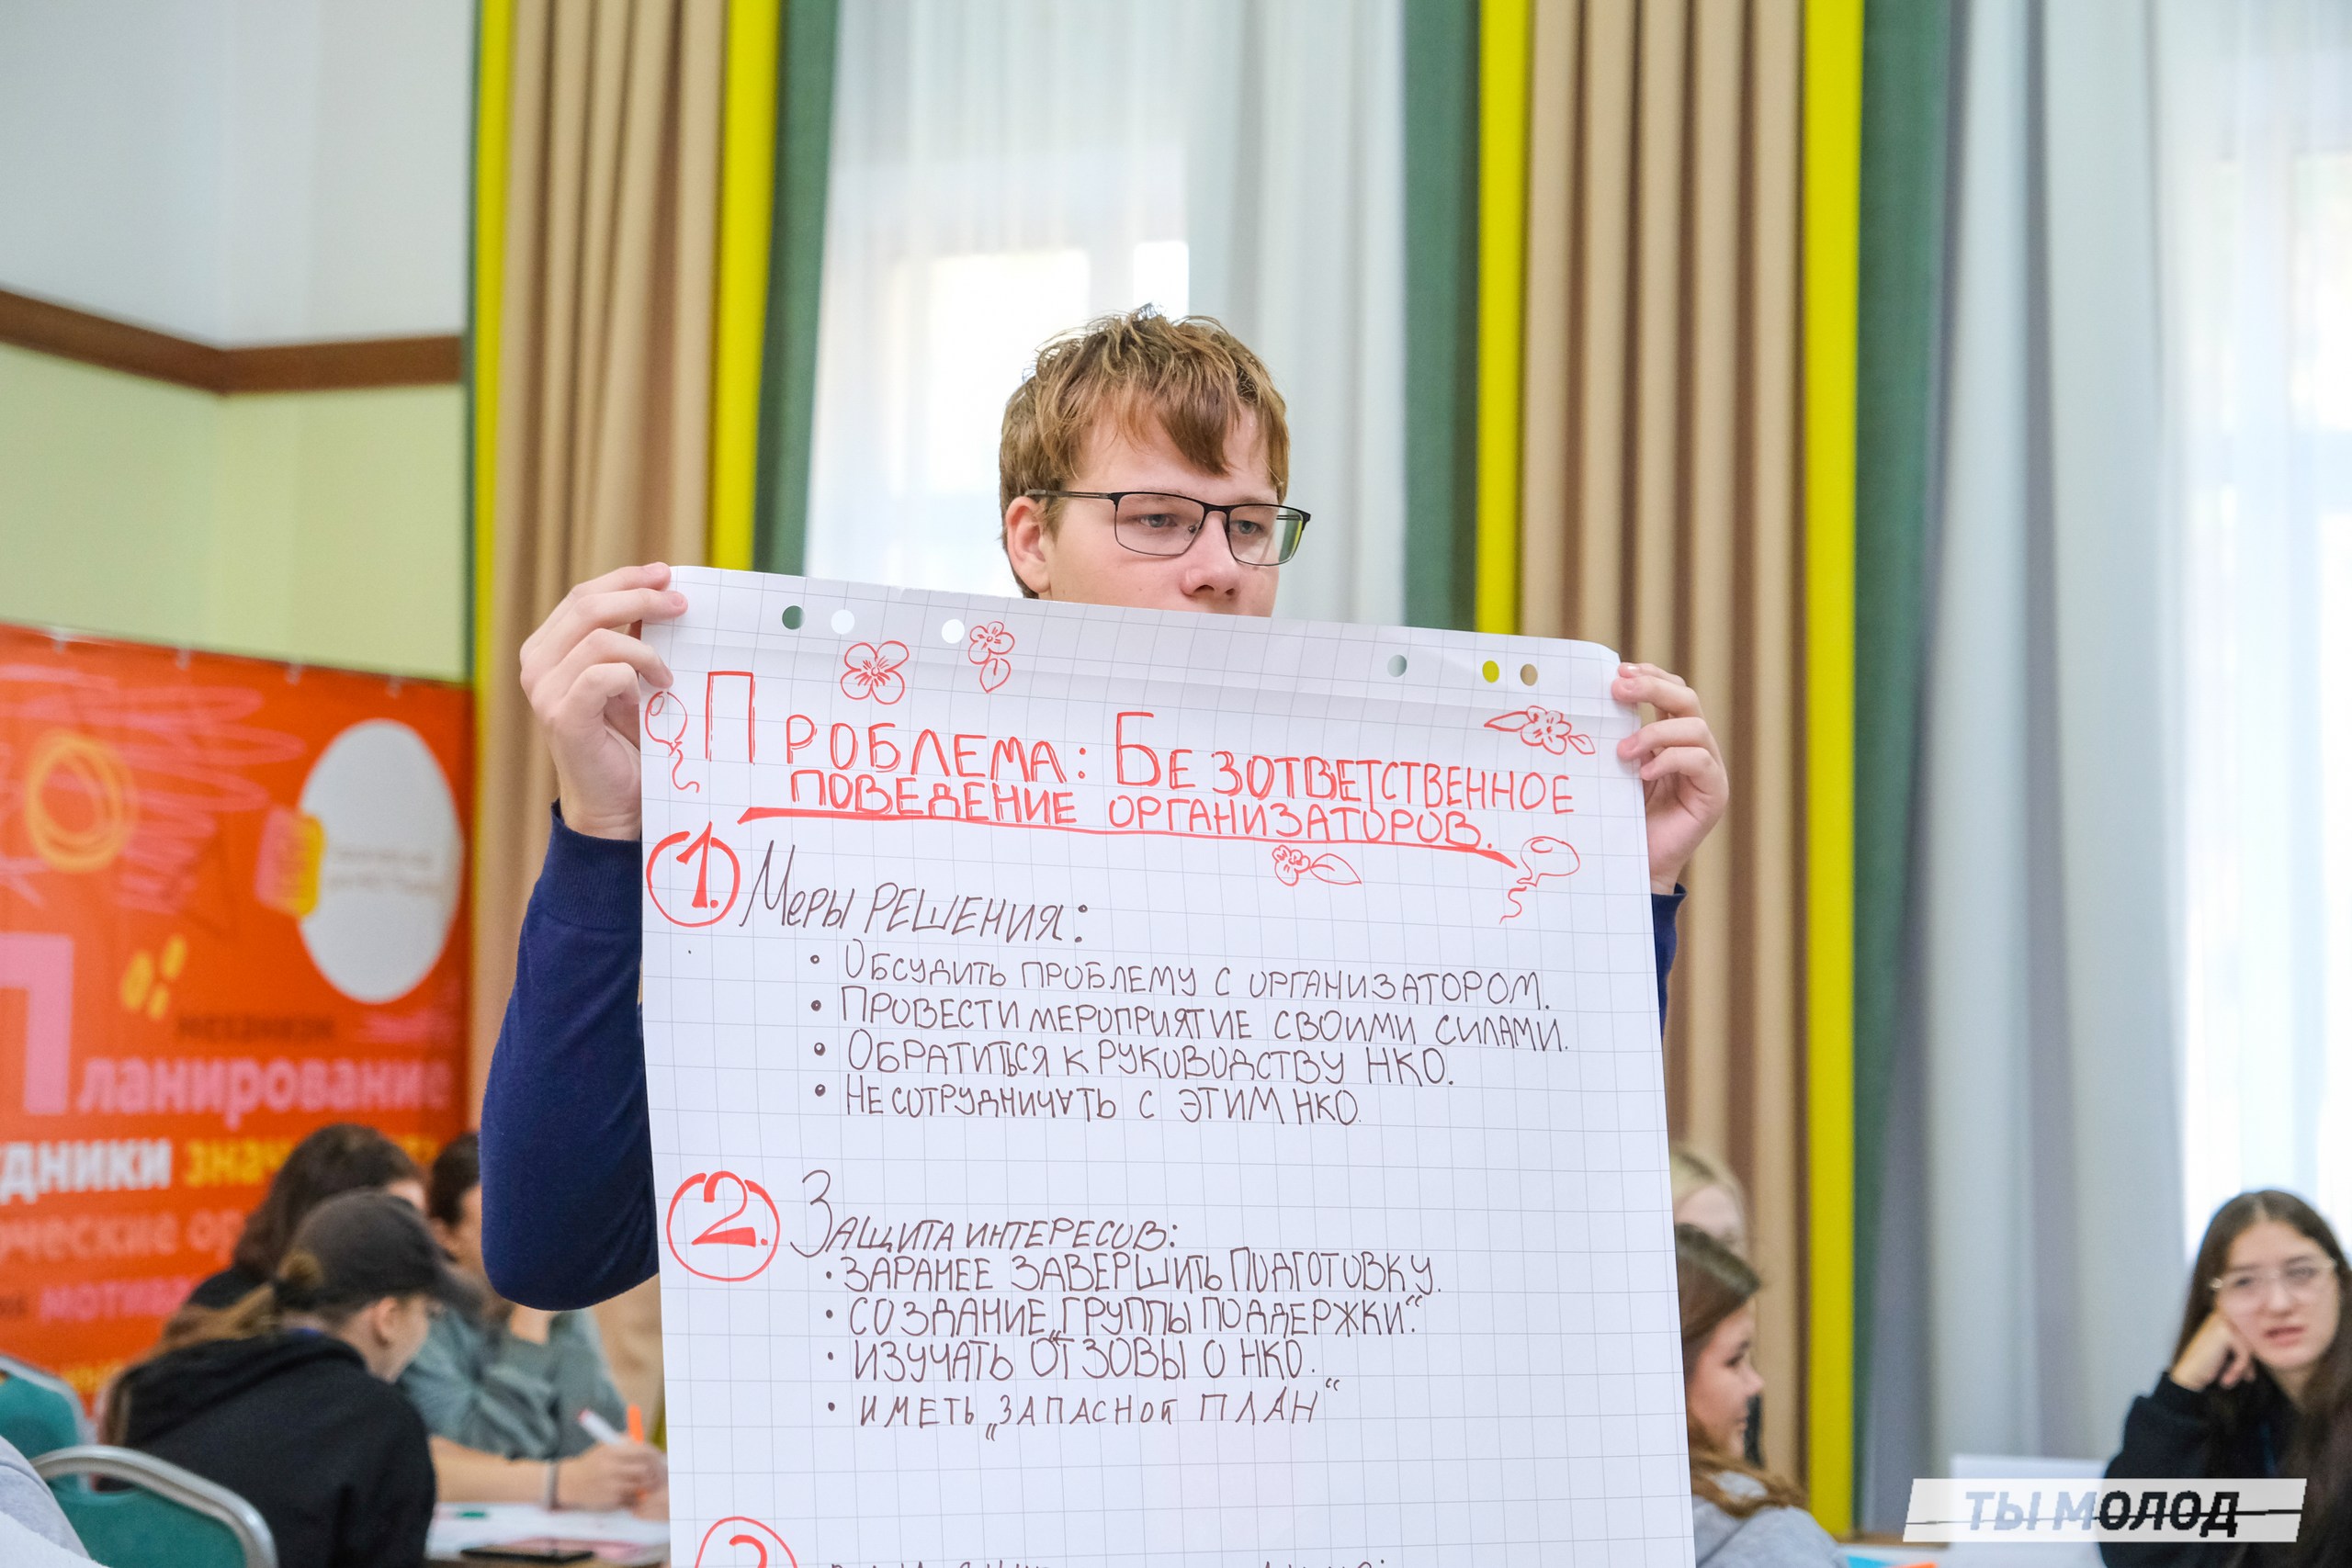 Проблема: Безответственное
поведение организаторов.
1. Меры решения:
• Обсудить проблему с организатором.
• Провести мероприятие своими силами.
• Обратиться к руководству НКО.
• Не сотрудничать с этим НКО.
2. Защита интересов:
• заранее завершить подготовку.
• создание „группы поддержки“.
• изучать отзывы о НКО.
• иметь „запасной план“
механизм
Планирование
мотива
ТЫ МОЛОД